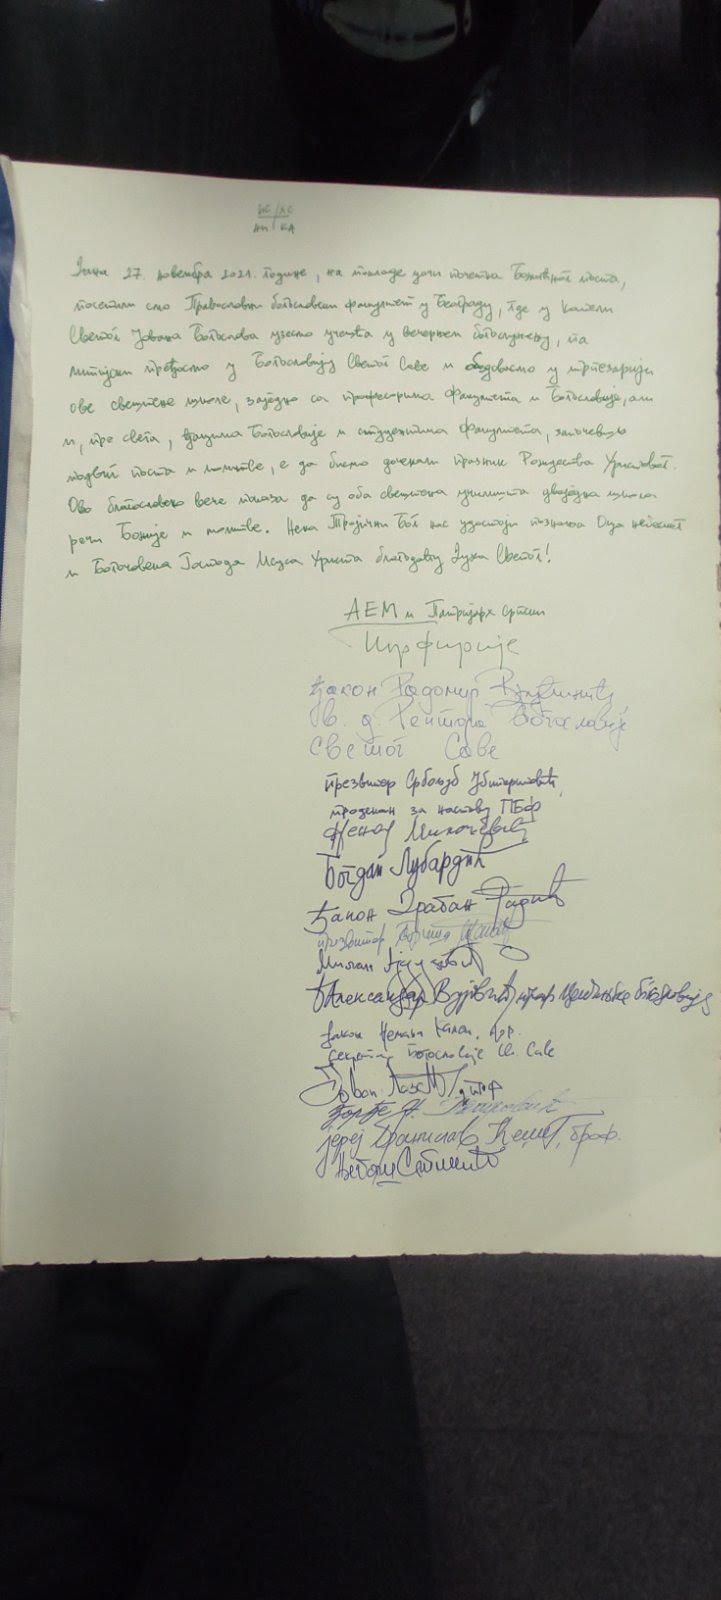 ИС ХС
НИ КА
Дана 27. новембра 2021. године, на покладе уочи почетка Божићног поста,
посетили смо Православни богословски факултет у Београду, где у капели
Светог Јована Богослова узесмо учешћа у вечерњем богослужењу, па
литијски пређосмо у Богословију Светог Саве и обедовасмо у трпезарији
ове свештене школе, заједно са професорима Факултета и Богословије, али
и, пре свега, ђацима Богословије и студентима Факултета, започевши
подвиг поста и молитве, е да бисмо дочекали празник Рождества Христовог.
Ово благословено вече показа да су оба свештена училишта двоједна школа
речи Божије и молитве. Нека Тројични Бог нас удостоји познања Оца небеског
и Богочовека Господа Исуса Христа благодаћу Духа Светог!
АЕМ и Патријарх српски
Порфирије
ђакон Радомир
в. д. Ректора Богословије
Светог Саве
презвитер Србољуб Убипариповић,
продекан за наставу ПБФ
Ненад Милошевић
Богдан Лубардић
Ђакон Здравко
презвитер
Милан
Александар Вујовић
ђакон Немања
секретар Богословије Св. Саве
Јован
Ђорђе Н.
јереј Бранислав Кеџић, проф.